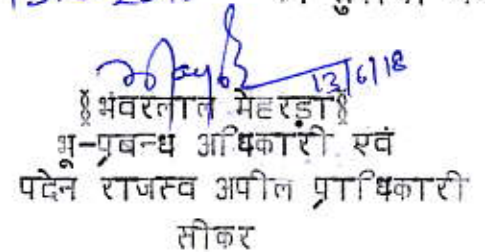 13/6/18
§भंवरलाल मेहरड़ा§
भू-प्रबन्ध अधिकारी एवं
पदेन राजस्व अपील प्राधिकारी
सीकर